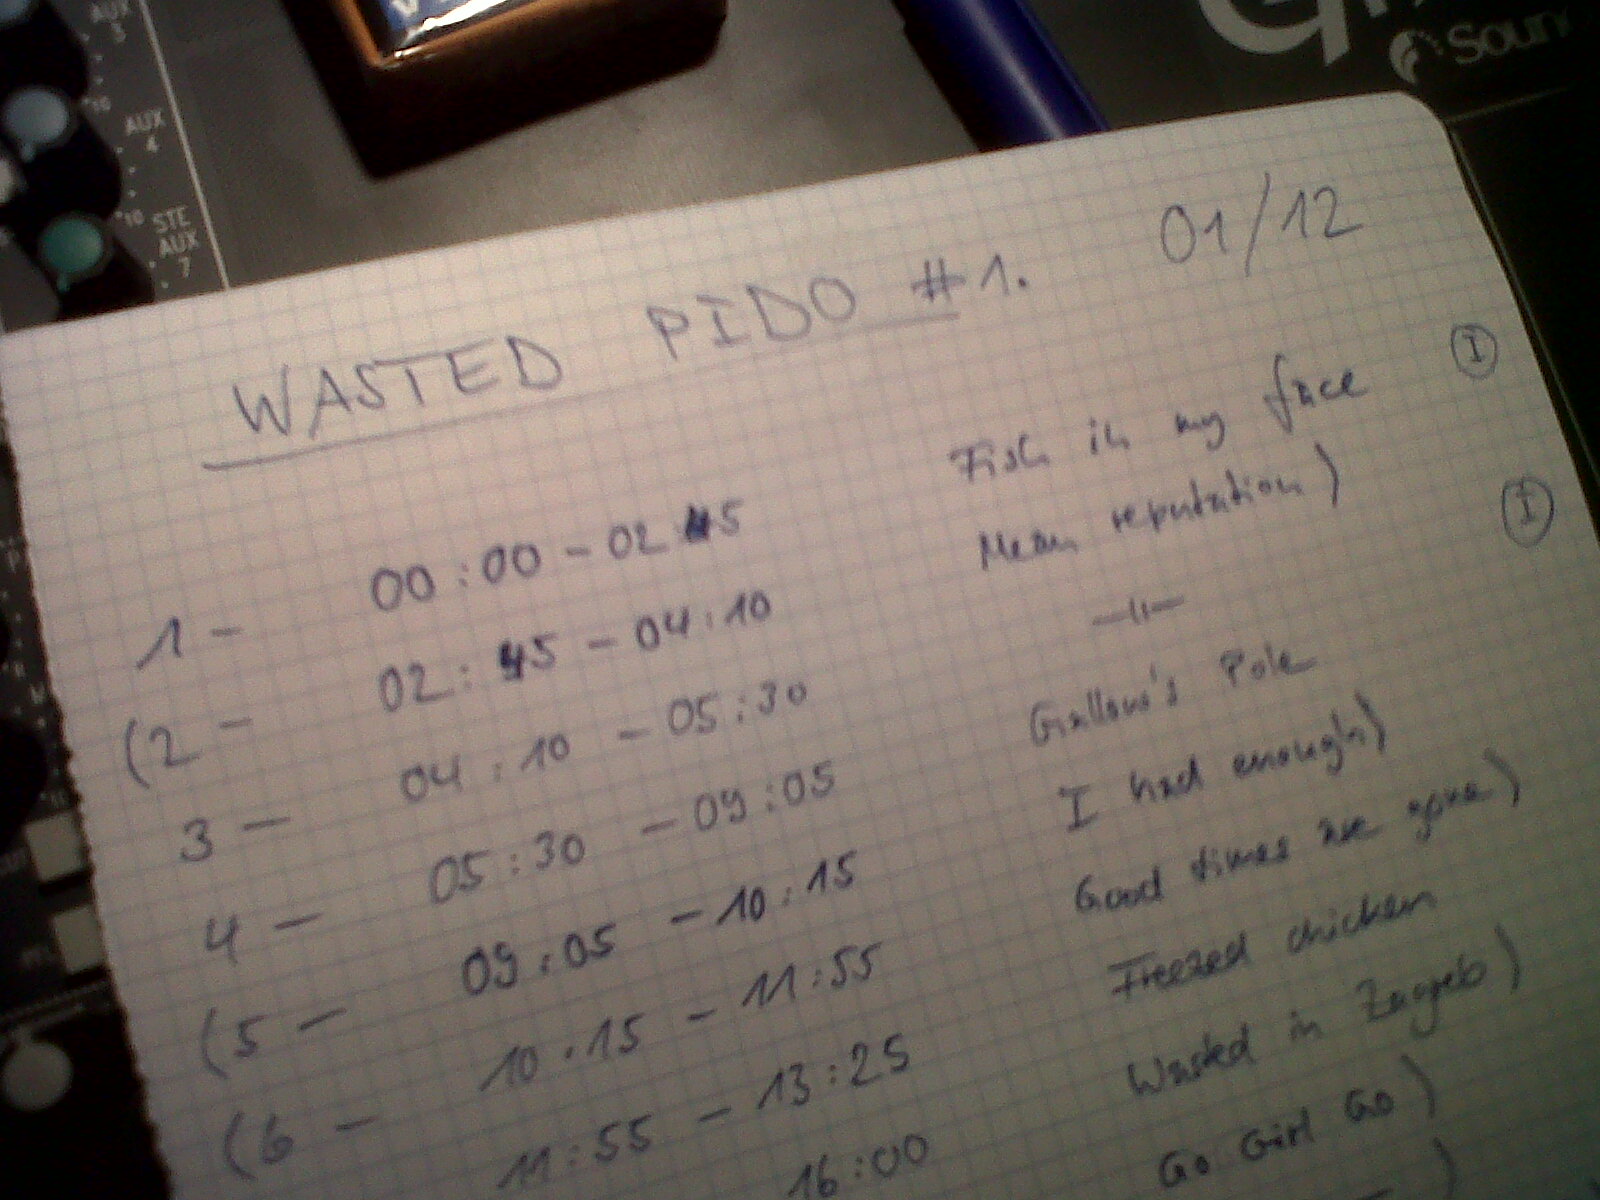 AUX
AUX
4
10
STE
AUX
7
Soun
WASTED PIDO #1.
01/12
1 - 00:00 - 02 45 Fish in my face I
(2 - 02:45 - 04:10 Mean reputation) I
3 - 04:10 - 05:30 —"—
4 - 05:30 - 09:05 Gallow's Pole
(5 - 09:05 - 10:15 I had enough)
(6 - 10.15 - 11:55 Good times are gone)
11:55 - 13:25 Freezed chicken
16:00 Wasted in Zagreb)
Go Girl Go)